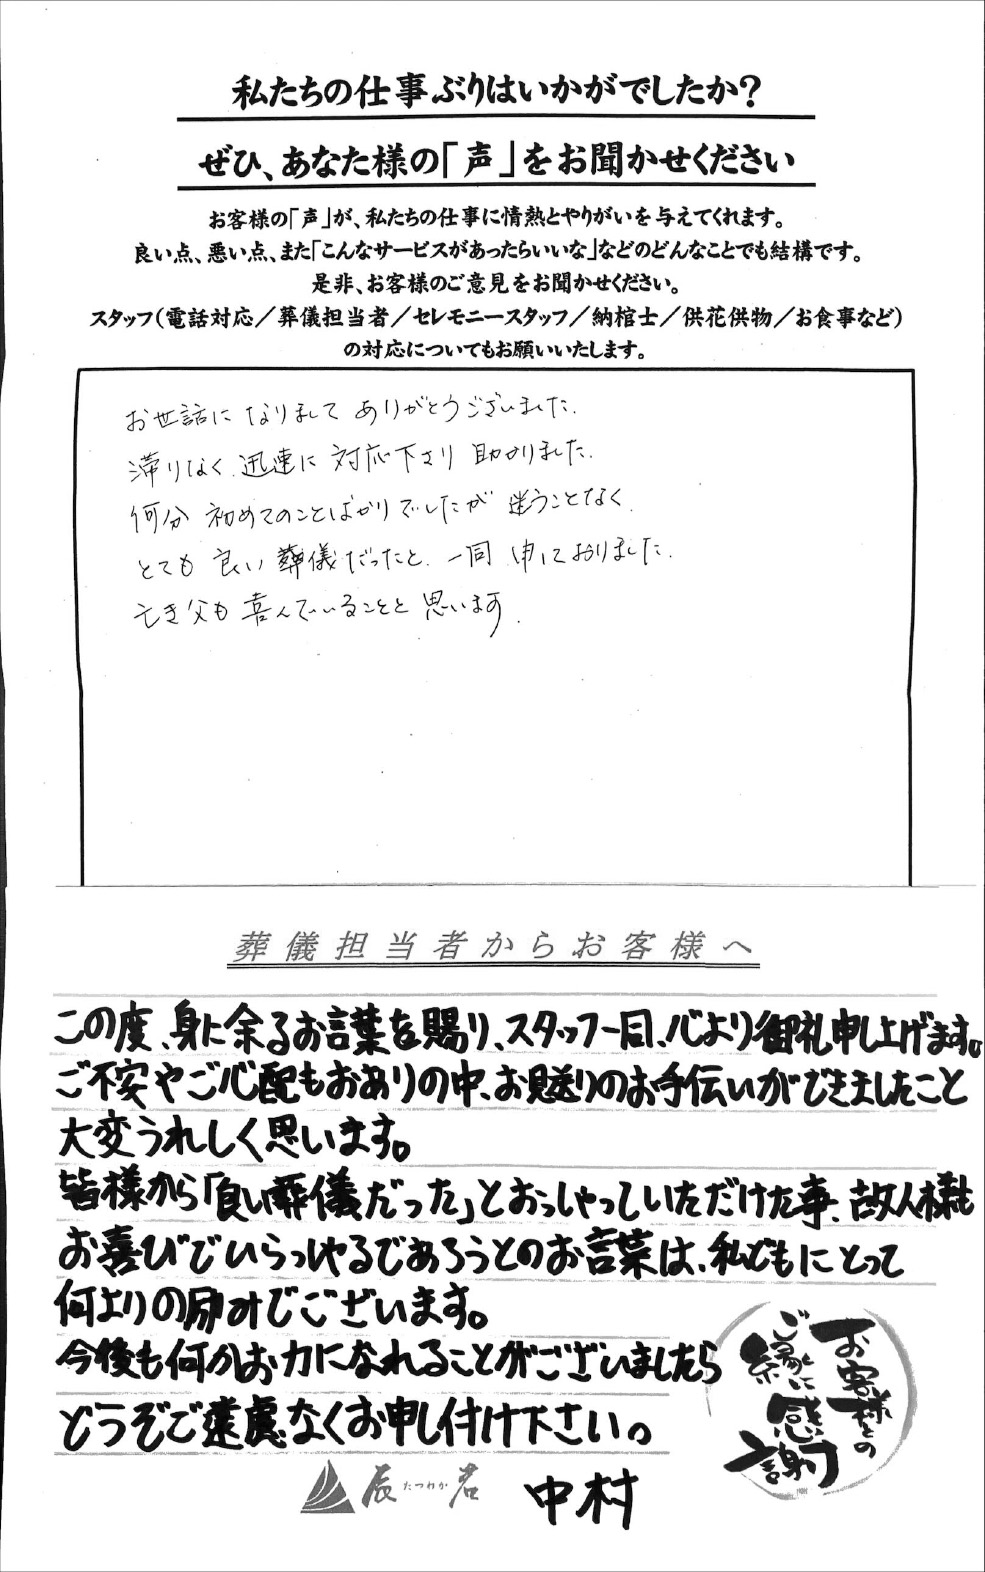 私たちの仕事ぶりはいかがでしたか?
ぜひ、あなた様の「声」をお聞かせください
お客様の「声」が、私たちの仕事に情熱とやりがいを与えてくれます。
良い点、悪い点、また「こんなサービスがあったらいいな」などのどんなことでも結構です。
是非、お客様のご意見をお聞かせください。
スタッフ(電話対応/葬儀担当者/セレモニースタッフ/納棺士/供花供物/お食事など)
の対応についてもお願いいたします。
お世話になりまして ありがとうございました.
滞りなく 迅速に 対応下さり 助かりました.
何分 初めてのことばかりでしたが 迷うことなく.
とても 良い 葬儀だったと. 一同 申しておりました.
亡き父も 喜んでいることと 思います.
葬儀担当者からお客様へ
この度、身に余るお言葉を賜り、スタッフ一同、心より御礼申し上げます。
ご不安やご心配もおありの中、お見送りのお手伝いができましたこと
大変うれしく思います。
皆様から「良い葬儀だった」とおっしゃっていただけた事、故人様も
お喜びでいらっしゃるであろうとのお言葉は、私どもにとって
何よりの励みでございます。
今後も何かお力になれることがございましたら
どうぞご遠慮なくお申し付け下さい。
お客様との
ご縁に
感謝
辰たつわか若 中村